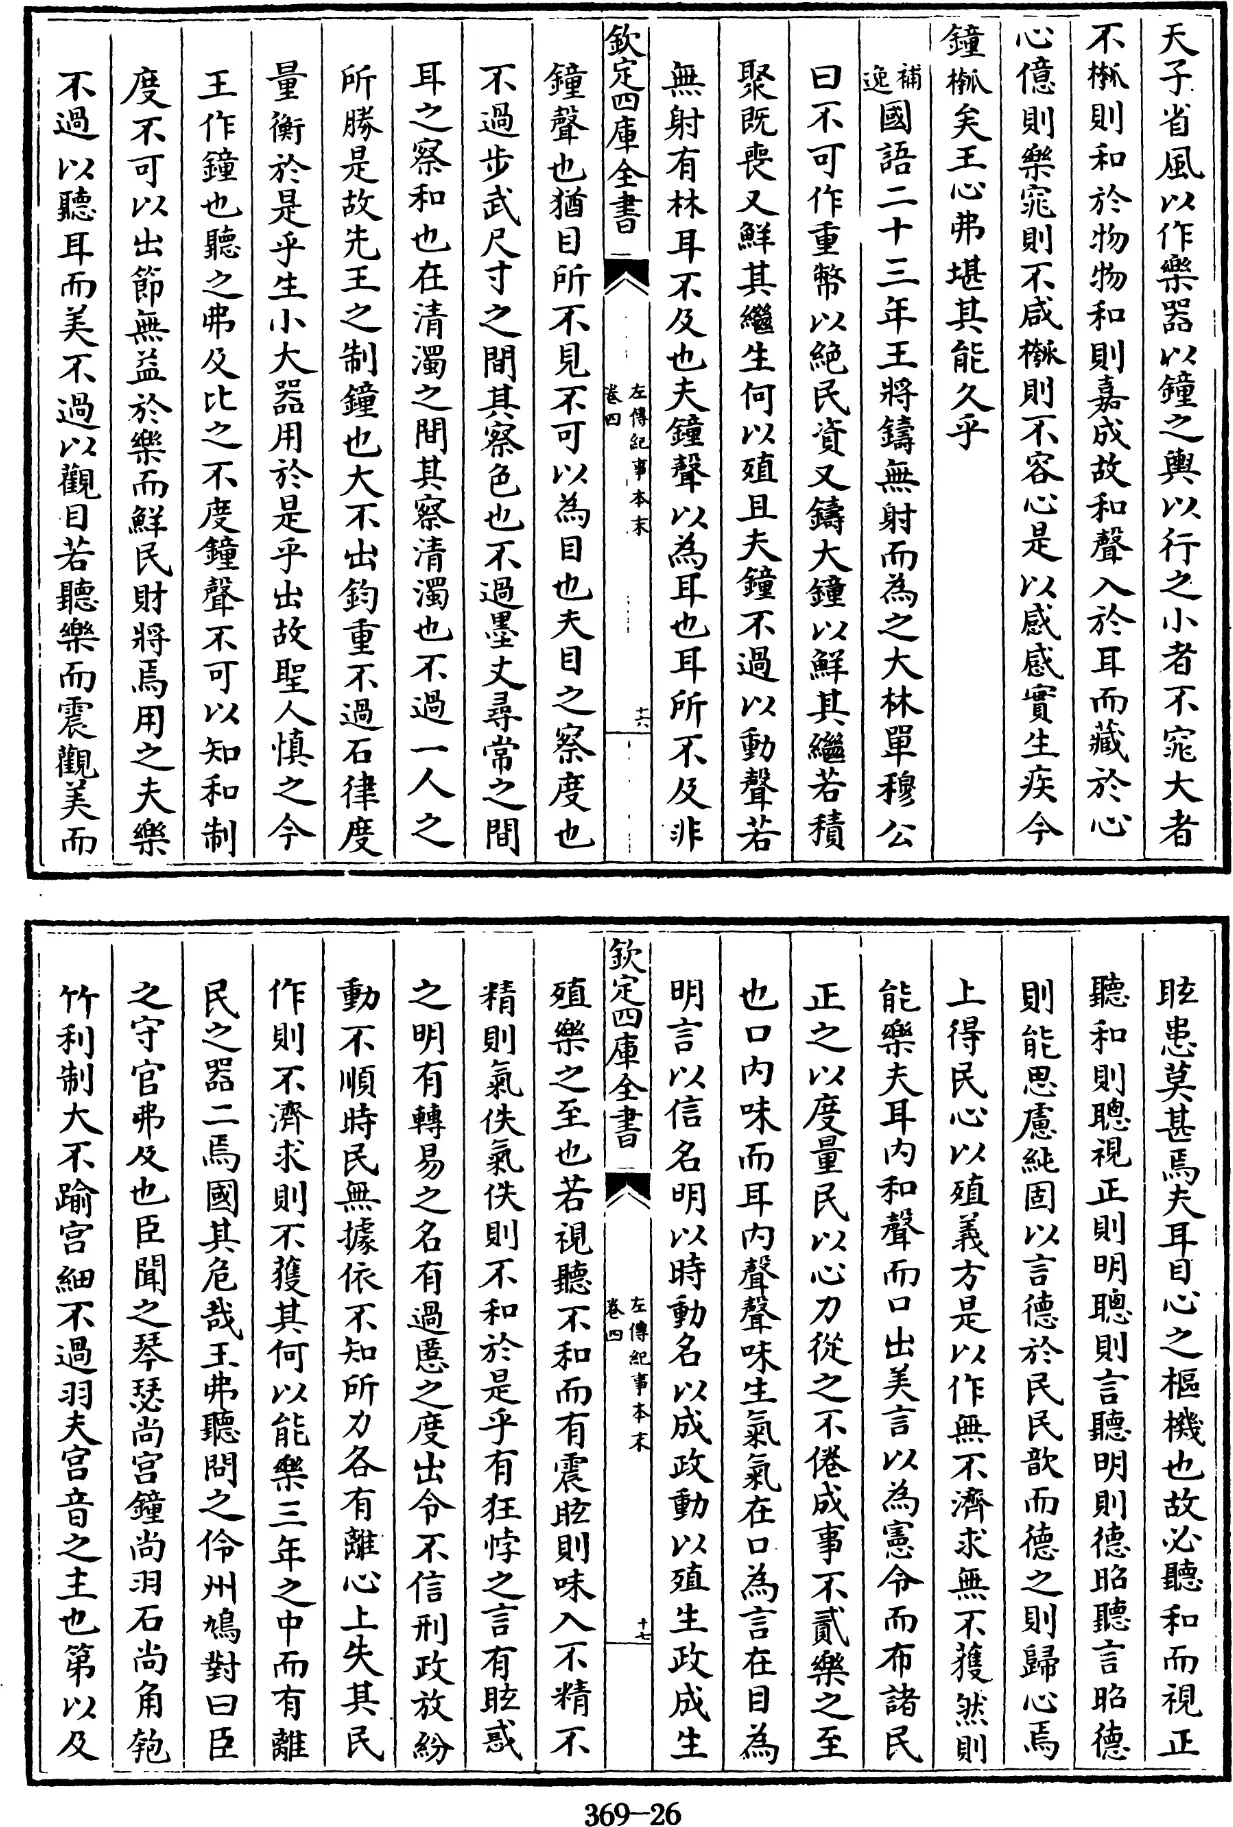 天子省風以作樂器以鐘之輿以行之小者不窕大者
不槬則和於物物和則嘉成故和聲入於耳而藏於心
心億則樂窕則不咸槬則不容心是以感感實生疾今
鐘槬矣王心弗堪其能久乎
補逸國語二十三年王將鑄無射而為之大林單穆公
曰不可作重幣以絶民資又鑄大鐘以鮮其繼若積
聚既喪又鮮其繼生何以殖且夫鐘不過以動聲若
無射有林耳不及也夫鐘聲以為耳也耳所不及非
欽定四庫全書
左傳紀事本末
卷四
十六
鐘聲也猶目所不見不可以為目也夫目之察度也
不過步武尺寸之間其察色也不過墨丈尋常之間
耳之察和也在清濁之間其察清濁也不過一人之
所勝是故先王之制鐘也大不出鈞重不過石律度
量衡於是乎生小大器用於是乎出故聖人慎之今
王作鐘也聽之弗及比之不度鐘聲不可以知和制
度不可以出節無益於樂而鮮民財將焉用之夫樂
不過以聽耳而美不過以觀目若聽樂而震觀美而
眩患莫甚焉夫耳目心之樞機也故必聽和而視正
聽和則聰視正則明聰則言聽明則德昭聽言昭德
則能思慮純固以言德於民民歆而德之則歸心焉
上得民心以殖義方是以作無不濟求無不獲然則
能樂夫耳内和聲而口出美言以為憲令而布諸民
正之以度量民以心力從之不倦成事不貳樂之至
也口内味而耳内聲聲味生氣氣在口為言在目為
明言以信名明以時動名以成政動以殖生政成生
欽定四庫全書
左傳紀事本末
卷四
十七
殖樂之至也若視聽不和而有震眩則味入不精不
精則氣佚氣佚則不和於是乎有狂悖之言有眩惑
之明有轉易之名有過慝之度出令不信刑政放紛
動不順時民無據依不知所力各有離心上失其民
作則不濟求則不獲其何以能樂三年之中而有離
民之器二焉國其危哉王弗聽問之伶州鳩對曰臣
之守官弗及也臣聞之琴瑟尚宮鐘尚羽石尚角匏
竹利制大不踰宮細不過羽夫宮音之主也第以及
369-26